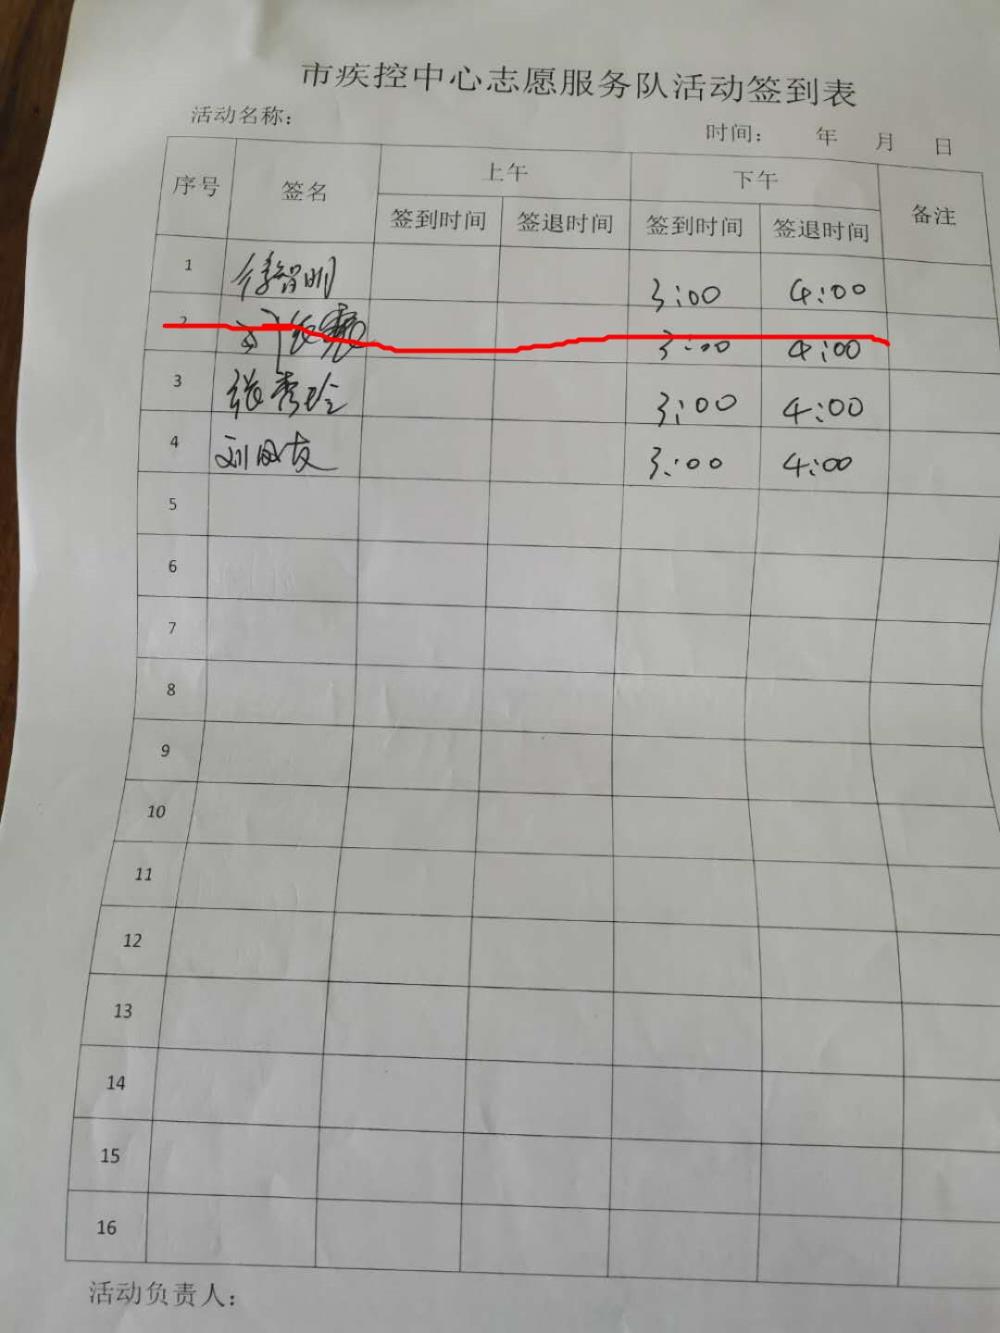 市疾控中心志愿服务队活动签到表
活动名称：
时间： 年 月 日
序号 签名 上午 下午 备注
签到时间 签退时间 签到时间 签退时间
1 智明 3:00 4:00
2 3:00 4:00
3 张秀玲 3:00 4:00
4 刘凤友 3:00 4:00
5
6
7
8
9
10
11
12
13
14
15
16
活动负责人：